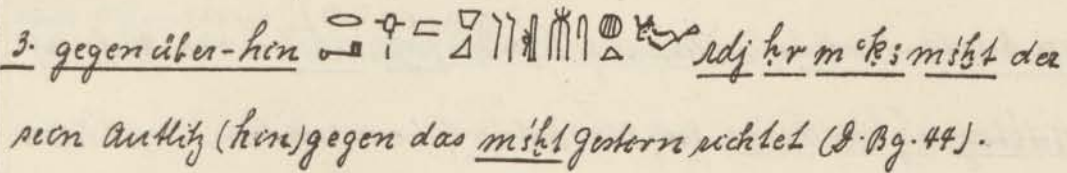 3. gegenüber-hin rdj ḥr m ꜥḳꜣ mśḫt der
sein Antlitz (hin)gegen das mśḫt Gestern richtet (D. Bg. 44).